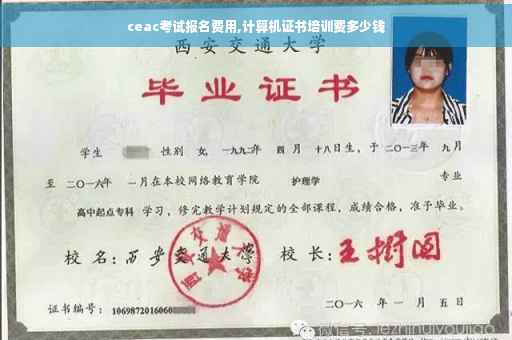 ceac考试报名费用,计算机证书培训费多少钱
西安交通大学
毕业证书
学生 性别 女,一九九二年 四月 十八日生，于二〇一三年 九月
至二〇一六年 一月在本校网络教育学院 护理学 专业
高中起点专科 学习，修完教学计划规定的全部课程，成绩合格，准予毕业。
校名：西安交通大学 校长：王树国
西安交通大学
证书编号：1069872016060 二〇一六年一月五日
微信号: jezhinuiyoujiao